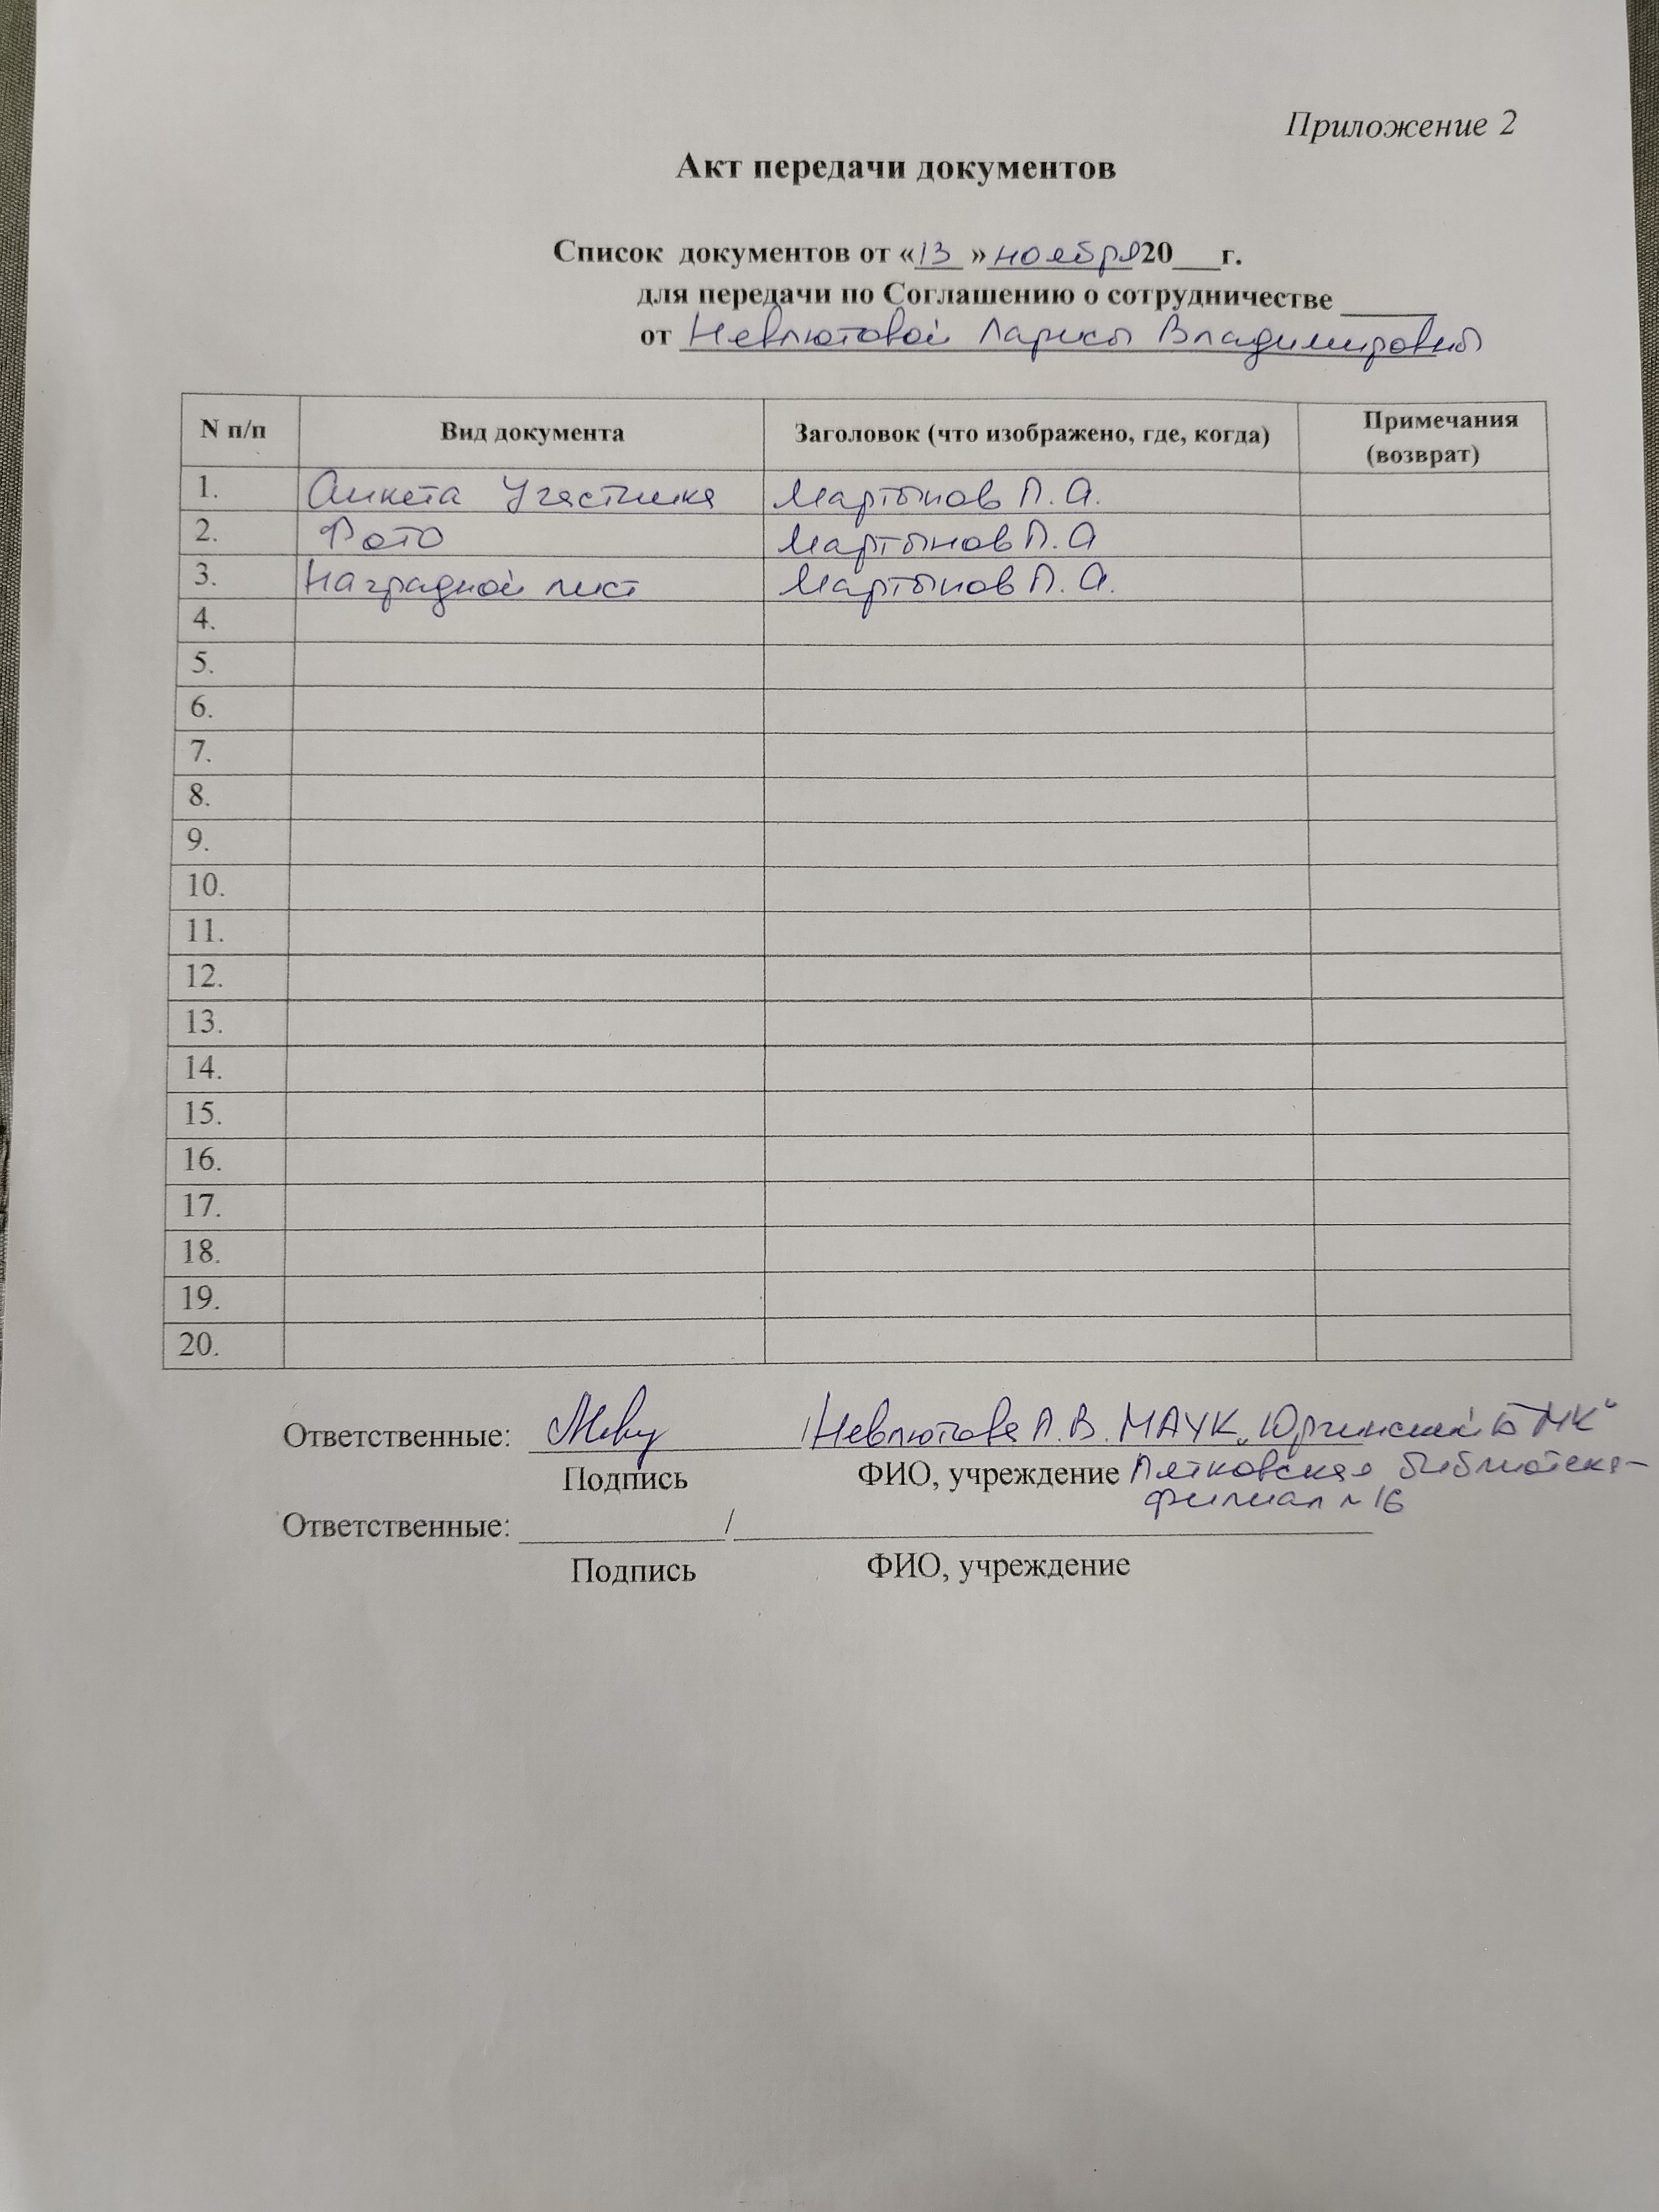 Приложение 2
Акт передачи документов
Список документов от «13» ноября 20___г.
для передачи по Соглашению о сотрудничестве ______
от Невлютовой Ларисы Владимировны
N п/п Вид документа Заголовок (что изображено, где, когда) Примечания (возврат)
1. Анкета Участника Мартынов П. А.
2. Фото Мартынов П. А
3. Наградной лист Мартынов П. А.
4.
5.
6.
7.
8.
9.
10.
11.
12.
13.
14.
15.
16.
17.
18.
19.
20.
Ответственные: / Невлютова Л. В. МАУК „Юргинский БМК"
Подпись ФИО, учреждение Лятковская библиотека-
филиал № 16
Ответственные: ____________/____________
Подпись ФИО, учреждение